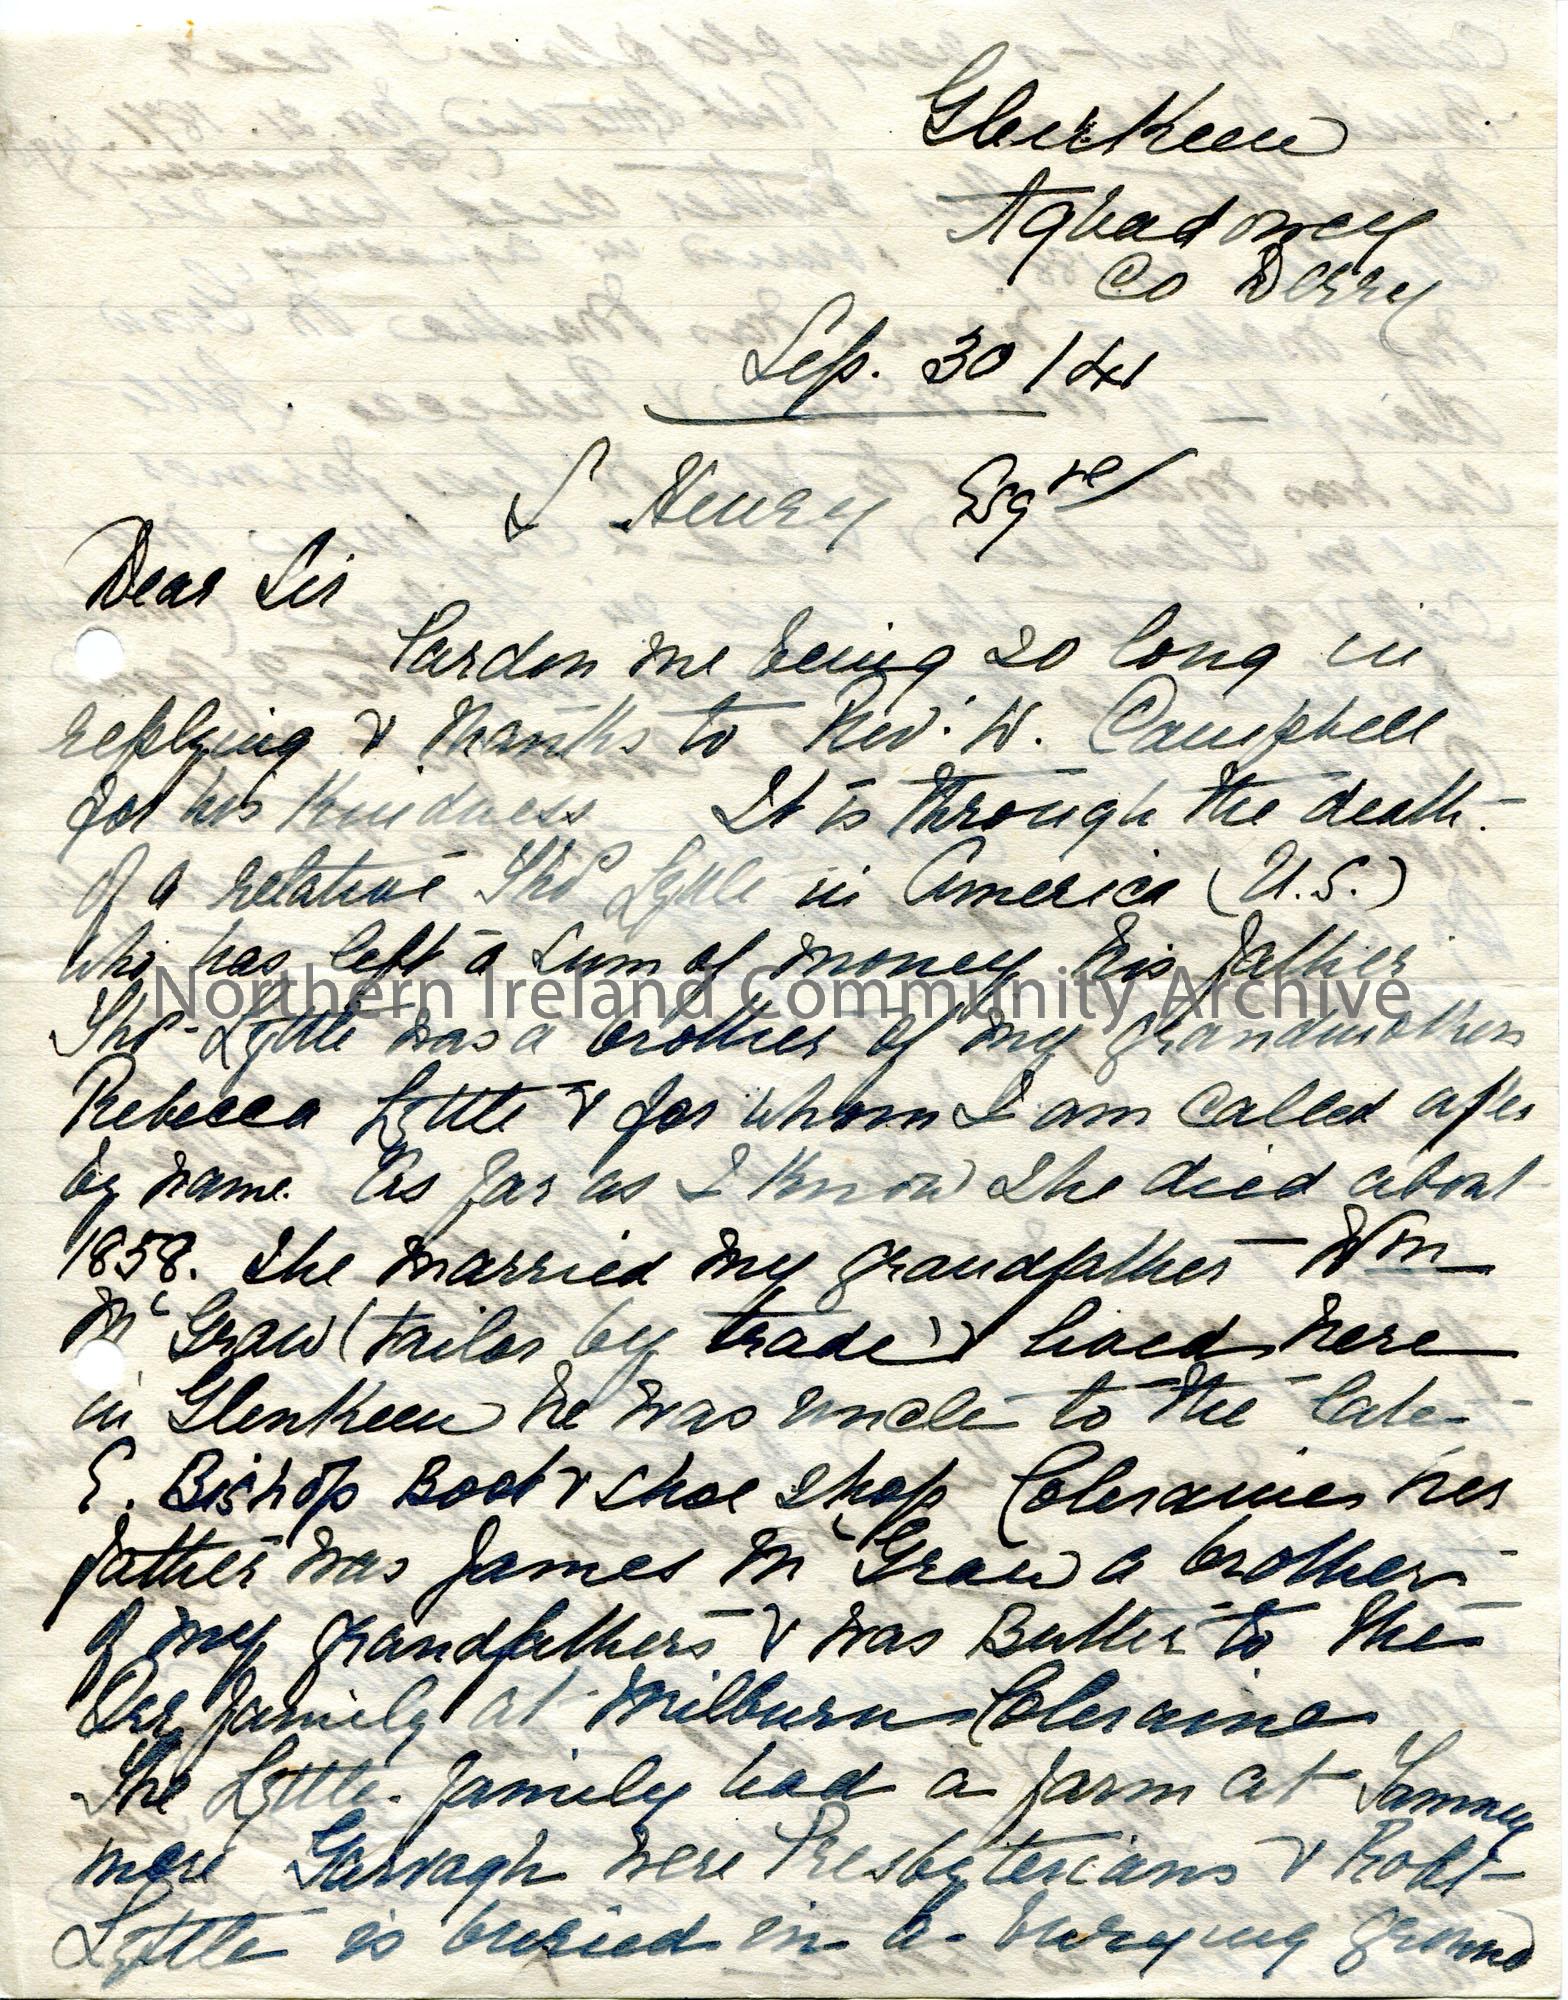 GlenKeen
Aghadowey
Co Derry
Sep. 30/41
S Henry Esqre
Dear Sir
Pardon me being so long in
replying & thanks to Rev. W. Campbell
for his Kindness It is through the death
of a relative Tho Lyttle in America (U.S.)
who has left a sum of money his father
Northern Ireland Community Archive
Tho Lyttle was a brother of my grandmothers
Rebecca Lyttle & for whom I am called after
by name. As far as I Know she died about
1858. She married my grandfather Wm
Mc Graw (tailor by trade) & lived here
in GlenKeen he was uncle to the late
E. Bishop Boot & shoe shop Coleraine her
father was James Mc Graw a brother
of my grandfathers & was Butler to the
Orr family at Milburn Coleraine
The Lyttle family had a farm at Tamney
more Garvagh were Presbyterians & Robt
Lyttle is buried in a burying ground